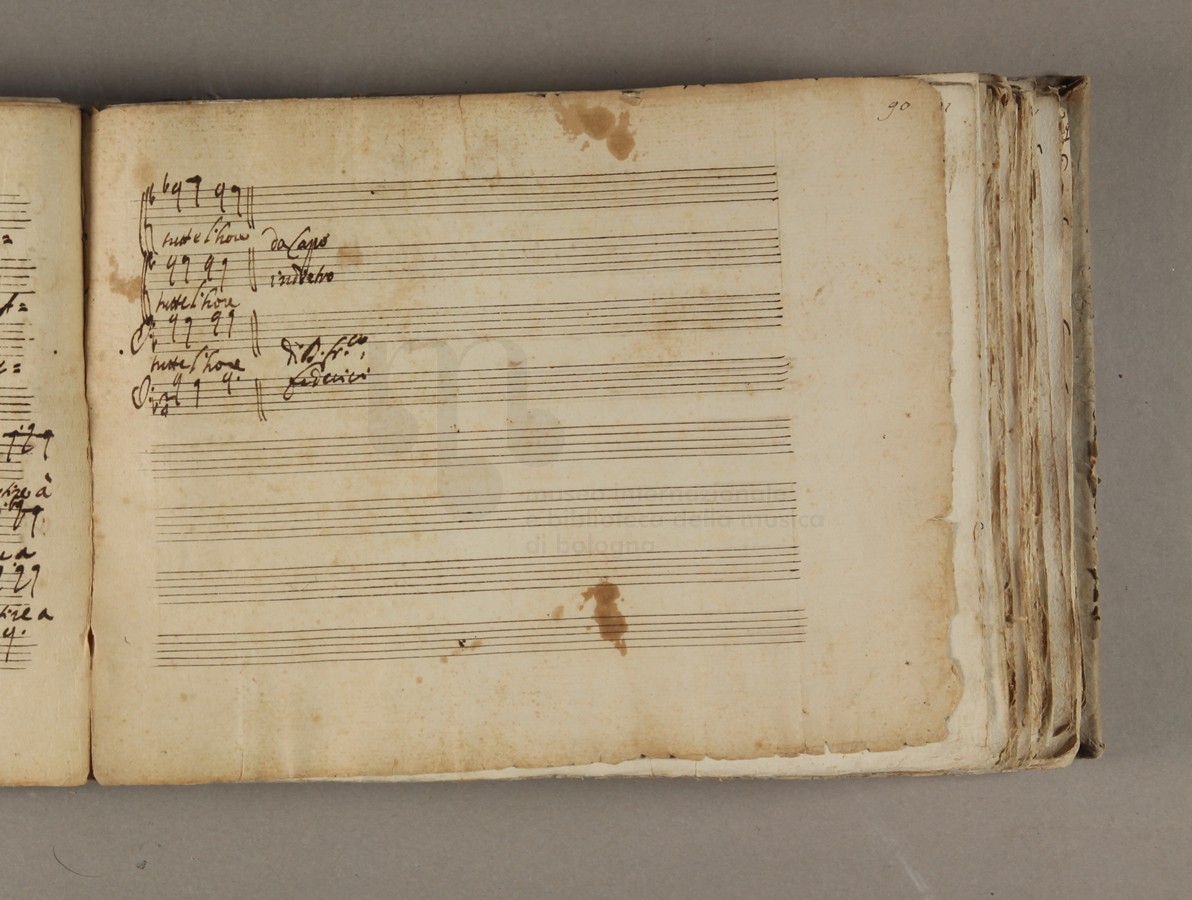 90
tutte l'hore
da Capo
indietro
tutte l'hore
tutte l'hore
di D. Fr.co
Federici
tire à
tire a
museo internazionale
e biblioteca della musica
di bologna